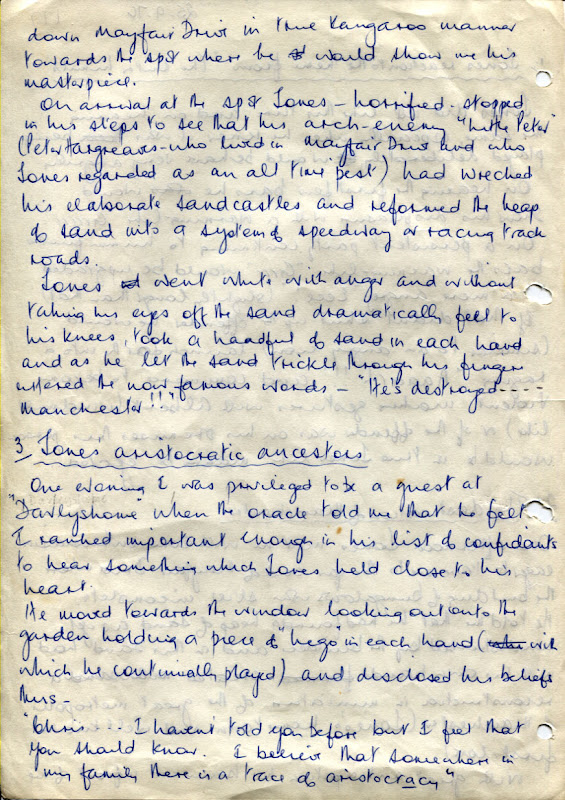 down Mayfair Drive in true Kangaroo manner
towards the spot where he would show me his
masterpiece.
On arrival at the spot Jones - horrified - stopped
in his steps to see that his arch-enemy "Little Peter"
(Peter Hargreaves - who lived in Mayfair Drive and who
Jones regarded as an all time pest) had wrecked
his elaborate sandcastles and reformed the heap
of sand into a system of speedway or racing track
roads.
Jones went white with anger and without
taking his eyes off the sand dramatically fell to
his knees, took a handful of sand in each hand
and as he let the sand trickle through his fingers
uttered the now famous words - "He's destroyed ----
Manchester!!!"
3 Jones aristocratic ancestors
One evening I was privileged to be a guest at
"Darlyshome" when the oracle told me that he felt
I ranked important enough in his list of confidants
to hear something which Jones held close to his
heart.
He moved towards the window looking out onto the
garden holding a piece of "lego" in each hand (with
which he continually played) and disclosed his beliefs
thus -
"Chris... I havent told you before but I feel that
you should know. I believe that somewhere in
my family there is a trace of aristocracy"